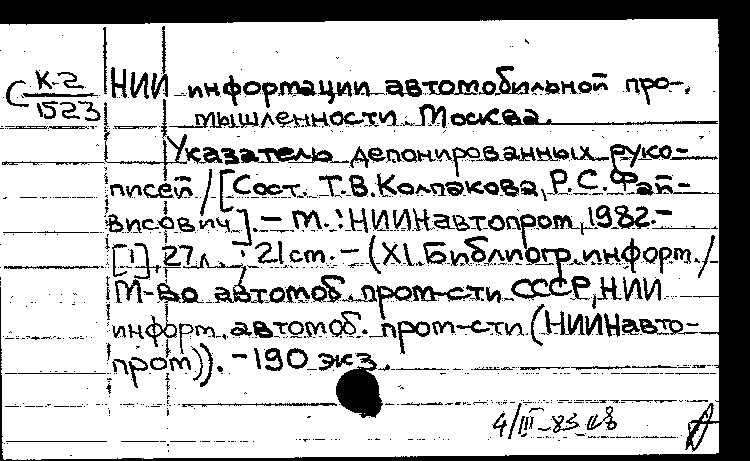 С К-2
1523
НИИ информации автомобильной про-
мышленности. Москва.
Указатель депонированных руко-
писей / [Сост. Т.В.Колпакова, Р.С.Фай-
висович]. – М. : НИИНавтопром, 1982.–
[1], 27 л. ; 21 см. – (XI. Библиогр. информ. /
М-во автомоб. пром-сти СССР, НИИ
информ. автомоб. пром-сти (НИИНавто-
пром)). – 190 экз.
4/III-83